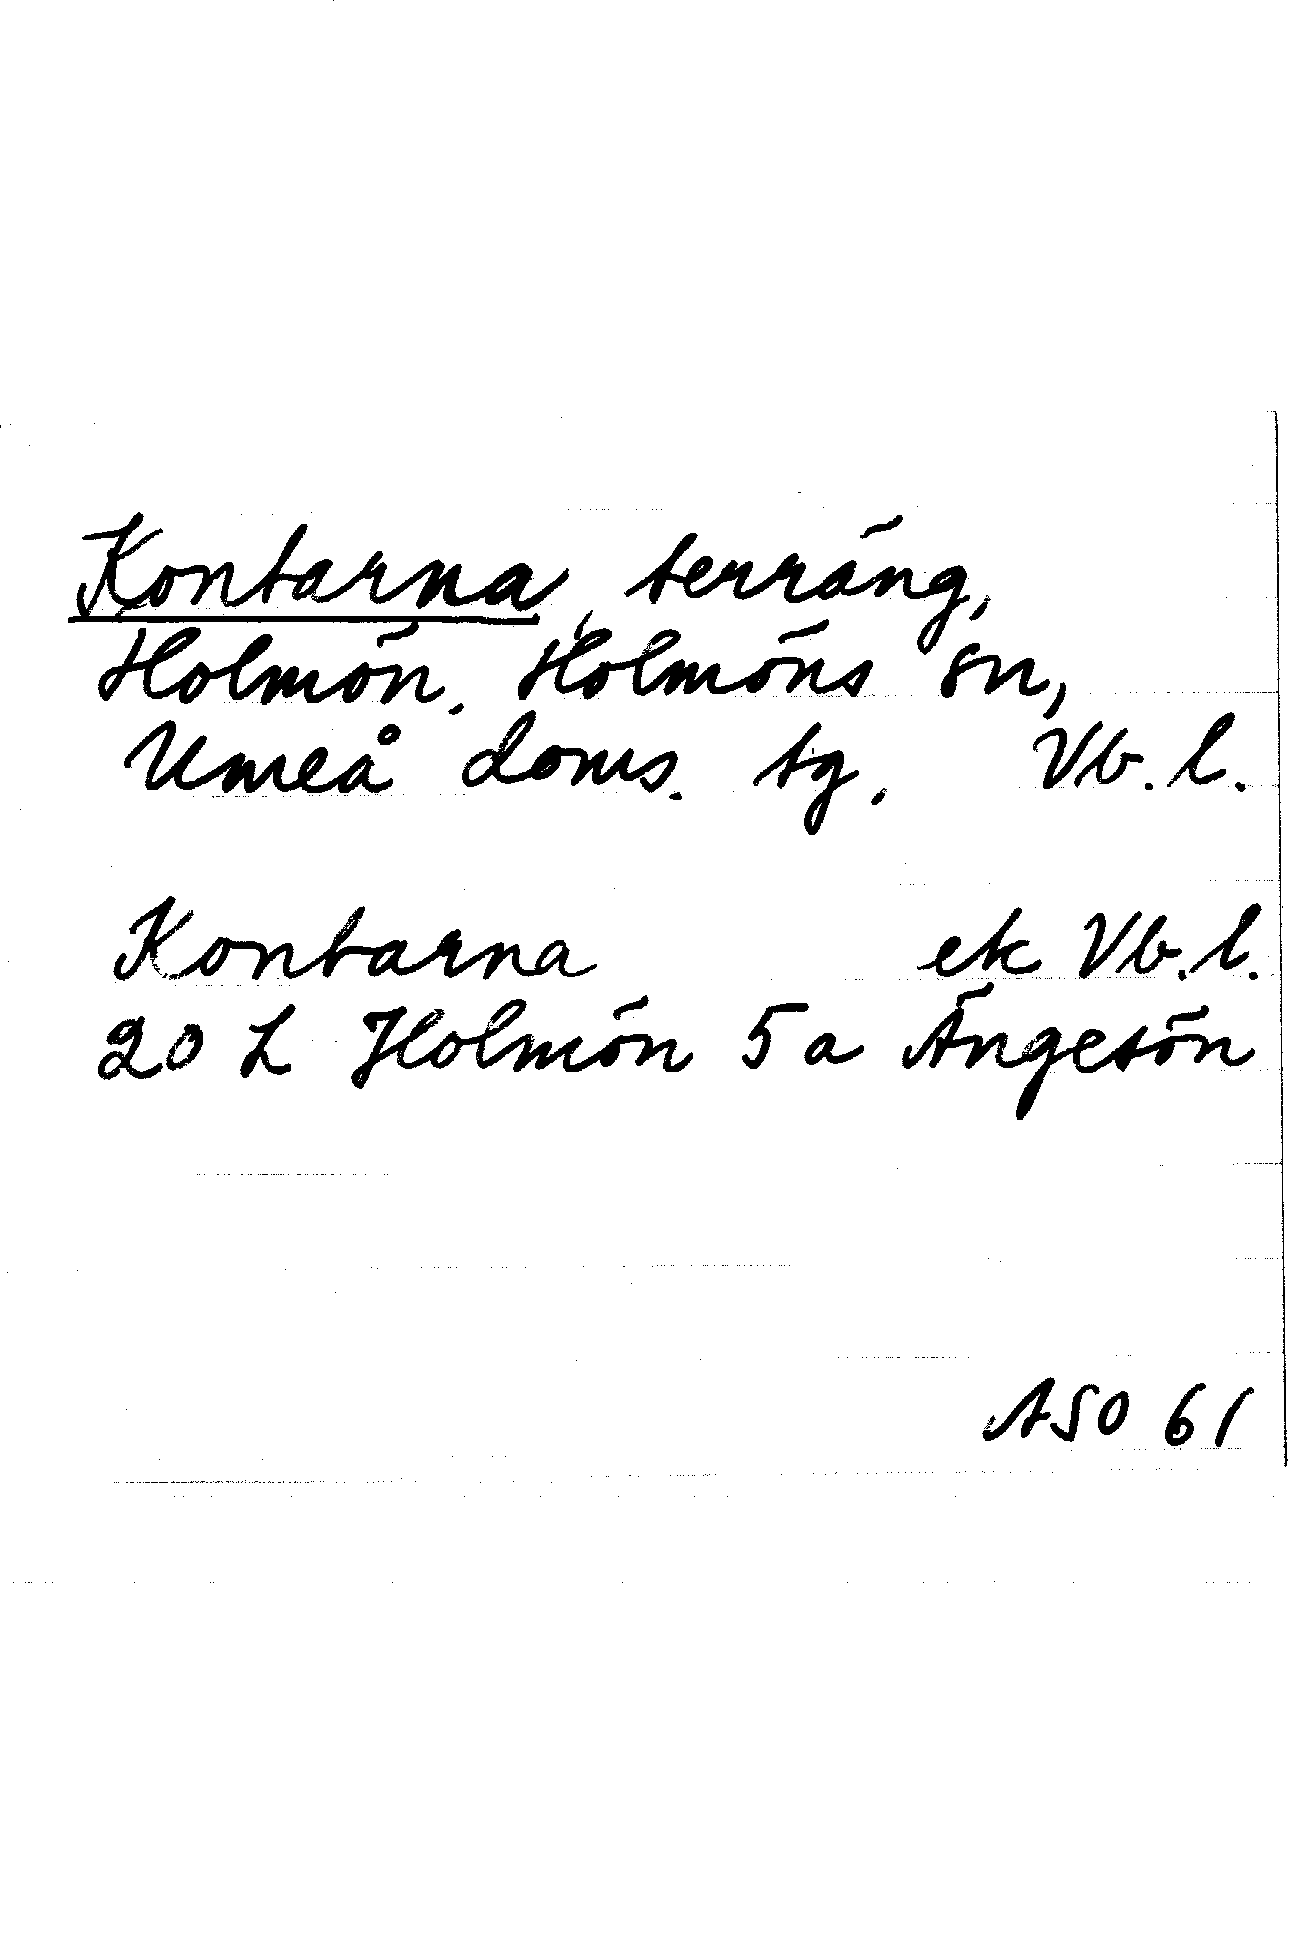 Kontarna, terräng,
Holmön. Holmöns sn,
Umeå doms. tg. Vb. l.
Kontarna ek Vb. l.
20 L Holmön 5 a Ängesön
ASO 61